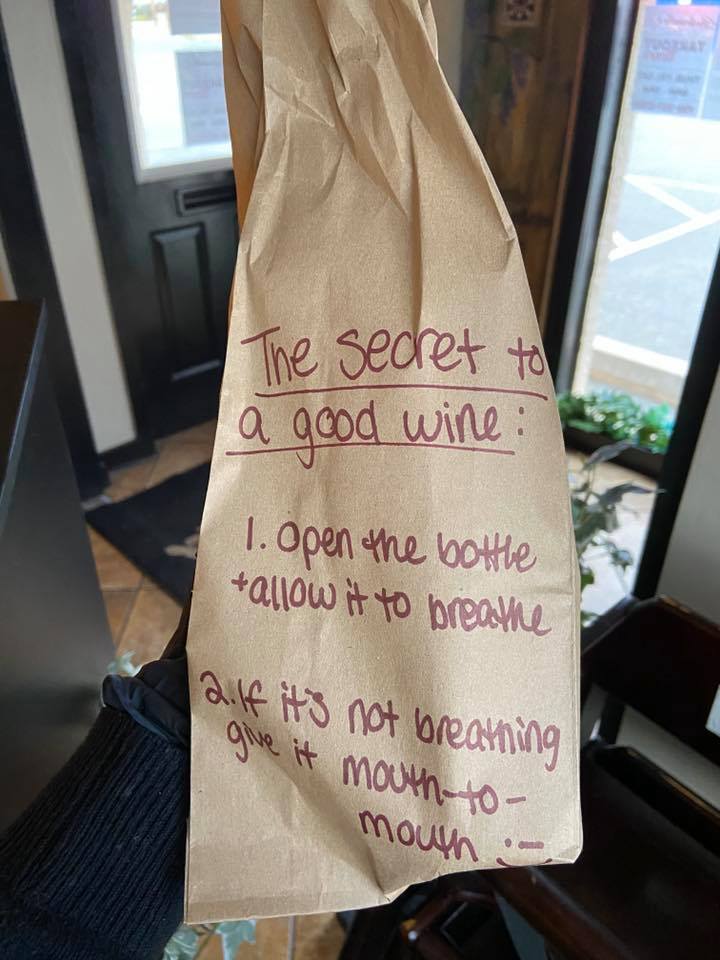 The secret to
a good wine:
1. Open the bottle
+allow it to breathe
2. If it's not breathing
give it mouth-to-
mouth :-
TAKEOUT